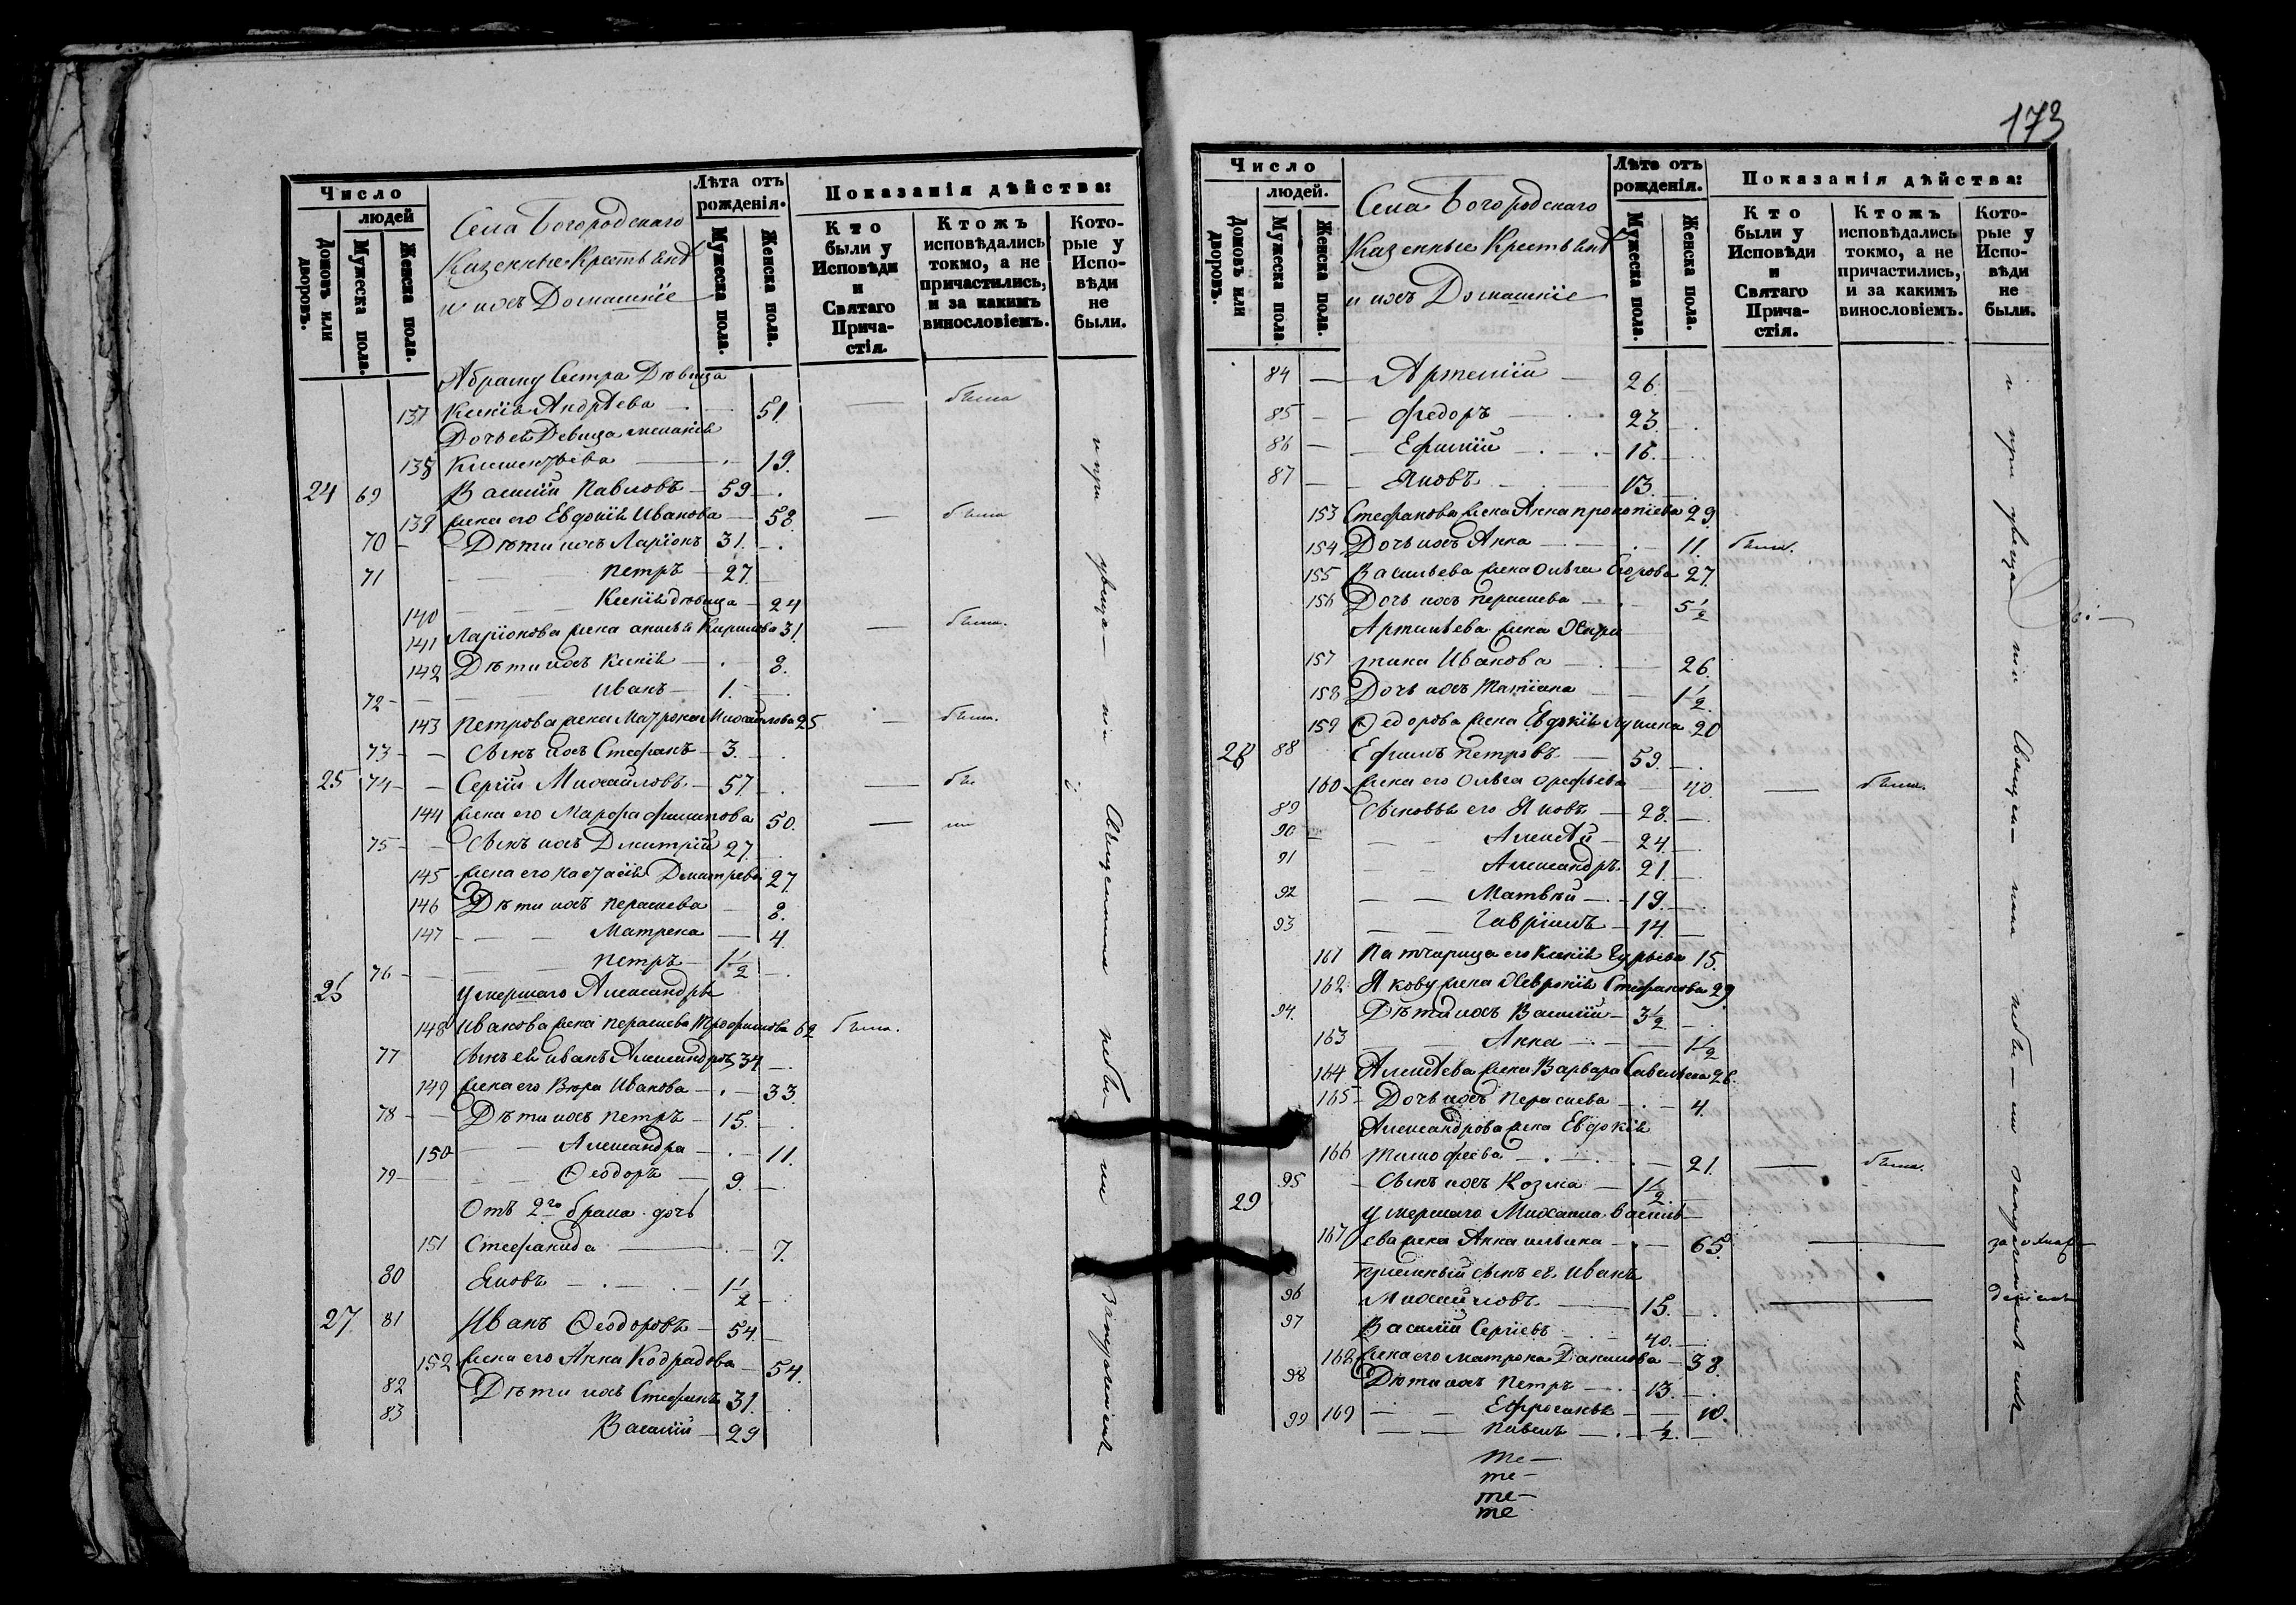 Число
людей
Домовъ или дворовъ.
Мужеска пола.
Женска пола.
Села Богородскаго
Казенные Крестьяне
и ихъ Домашнiе
Лѣта отъ рожденія.
Мужеска пола.
Женска пола.
Показанія дѣйства:
Кто были у Исповѣди и Святаго Прича-стія.
Ктожъ исповѣдались токмо, а не причастились, и за какимъ винословіемъ.
Кото-рые у Испо-вѣди не были.
Сестра Дѣвица
137 Ксенiя Андрѣева — 51. — была
Дочь ея Девица
138 — 19.
24 69 Василiй Павловъ — 59
139 жена его Евдокiя Иванова — 58. — была
70 — Дѣти ихъ Ларiонъ 31.
71 Петръ — 27.
140 Ксенiя дѣвица — 24
141 Ларiонова жена Кирилова 31. — была.
142 Дѣти ихъ Ксенiя — 8.
72 — Иванъ — 1.
143 Петрова жена Матрона Михайлова 25 — была.
73 — Сынъ ихъ Стефанъ — 3.
25 74 — Сергiй Михайловъ — 57
144 жена его Марфа Филипова 50.
75 — Сынъ ихъ Дмитрiй 27.
145 жена его Настасiя Дмитрева 27
146 Дѣти ихъ Парасцева — 8.
147 Матрена — 4.
76 — Петръ — 1 1/2
26 умершаго Александра
148 Иванова жена Парасцева Трофимова 62 была.
77 Сынъ ея Иванъ Александровъ 34
149 жена его Вѣра Иванова — 33.
78 — Дѣти ихъ Петръ — 15.
150 Александра — 11.
79 — Ѳеодоръ — 9.
Отъ 2го брака дочь
151 Стефанида — 7.
80 Яковъ — 1 1/2
27. 81 Иванъ Ѳеодоровъ — 54.
152 жена его Анна Кодрадова — 54.
82 Дѣти ихъ Стефанъ 31.
83 Василiй — 29
173
Число
людей.
Домовъ или дворовъ.
Мужеска пола
Женска пола.
Села Богородскаго
Казенные Крестьяне
и ихъ Домашнiе
Лѣта отъ рожденія.
Мужеска пола.
Женска пола.
Показанія дѣйства:
Кто были у Исповѣди и Святаго Прича-стія.
Ктожъ исповѣдались токмо, а не причастились, и за какимъ винословіемъ.
Кото-рые у Испо-вѣди не были.
84 — Артемiй — 26.
85 — Федоръ — 23.
86 — Ефимiй — 16.
87 — Яковъ — 13.
153 Стефанова жена Анна Прокопiева 29.
154 Дочь ихъ Анна — 11. была.
155 Васильева жена Ольга Егорова 27.
156 Дочь ихъ Парасцева — 5 1/2
Артемьева жена Хари
157 тина Иванова — 26.
158 Дочь ихъ Татiана — 1 1/2.
159 Ѳедорова жена Евдокiя 20
28 88 Ефимъ Петровъ — 59.
160 жена его Ольга Орефьева — 40. — была.
89 Сыновья его Яковъ — 28.
90 Алексѣй — 24.
91 Александръ 21.
92 Матвѣй — 19.
93 Гаврiилъ — 14.
161 Патчирица его Ксенiя Гурьева 15.
162 Якову жена Хевронiя Стефанова 29
94. Дѣти ихъ Василiй — 3 1/2
163 Анна — 1 1/2
164 Алексѣева жена Варвара Савельева 26.
165 — Дочь ихъ Парасцева — 4.
Александрова жена Евдокiя
166 Тимофеева — 21. — была.
95 — Сынъ ихъ Козма — 1 1/2.
29 умершаго Михаила Василь
167 ева жена Анна Ильина — 65.
Прiемный сынъ ея Иванъ
96 Михайловъ — 15.
97 Василiй Сергiевъ — 40.
168 жена его Матрона Данилова — 38.
98 Дѣти ихъ Петръ — 13.
169 Ефросинья — 10.
99 Павелъ — 1/2.
те —
те —
те —
те